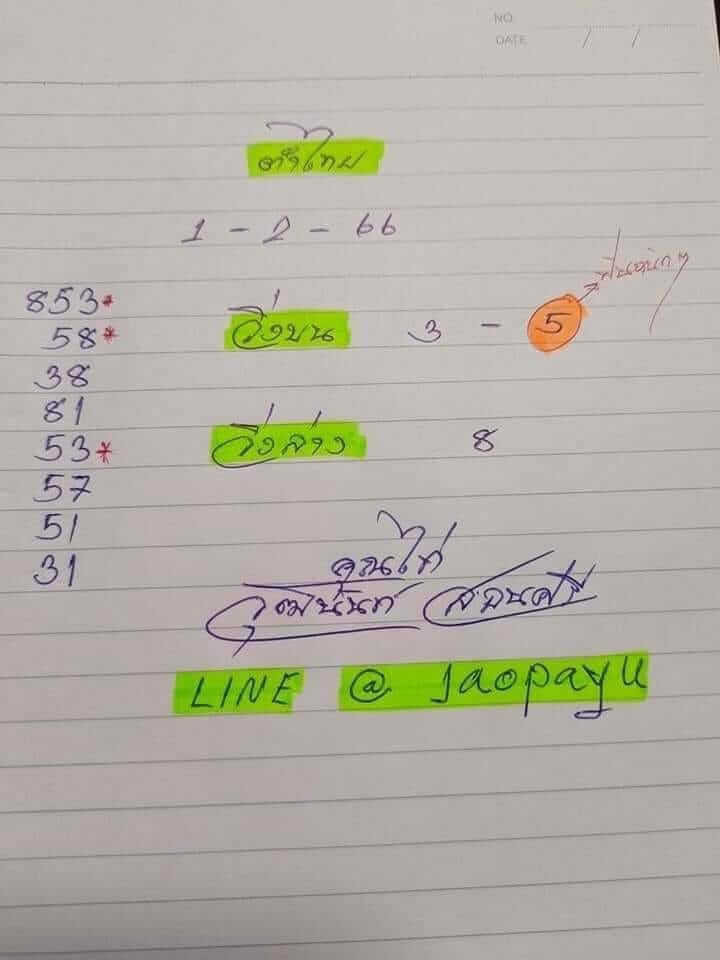 NO.
DATE / /
ตัวไทย
1 - 2 - 66
853*
58*
38
81
53*
57
51
31
วิ่งบน 3 - 5
วิ่งล่าง 8
คุณไก่
วุฒินันท์ สอนศรี
LINE @ jaopayu